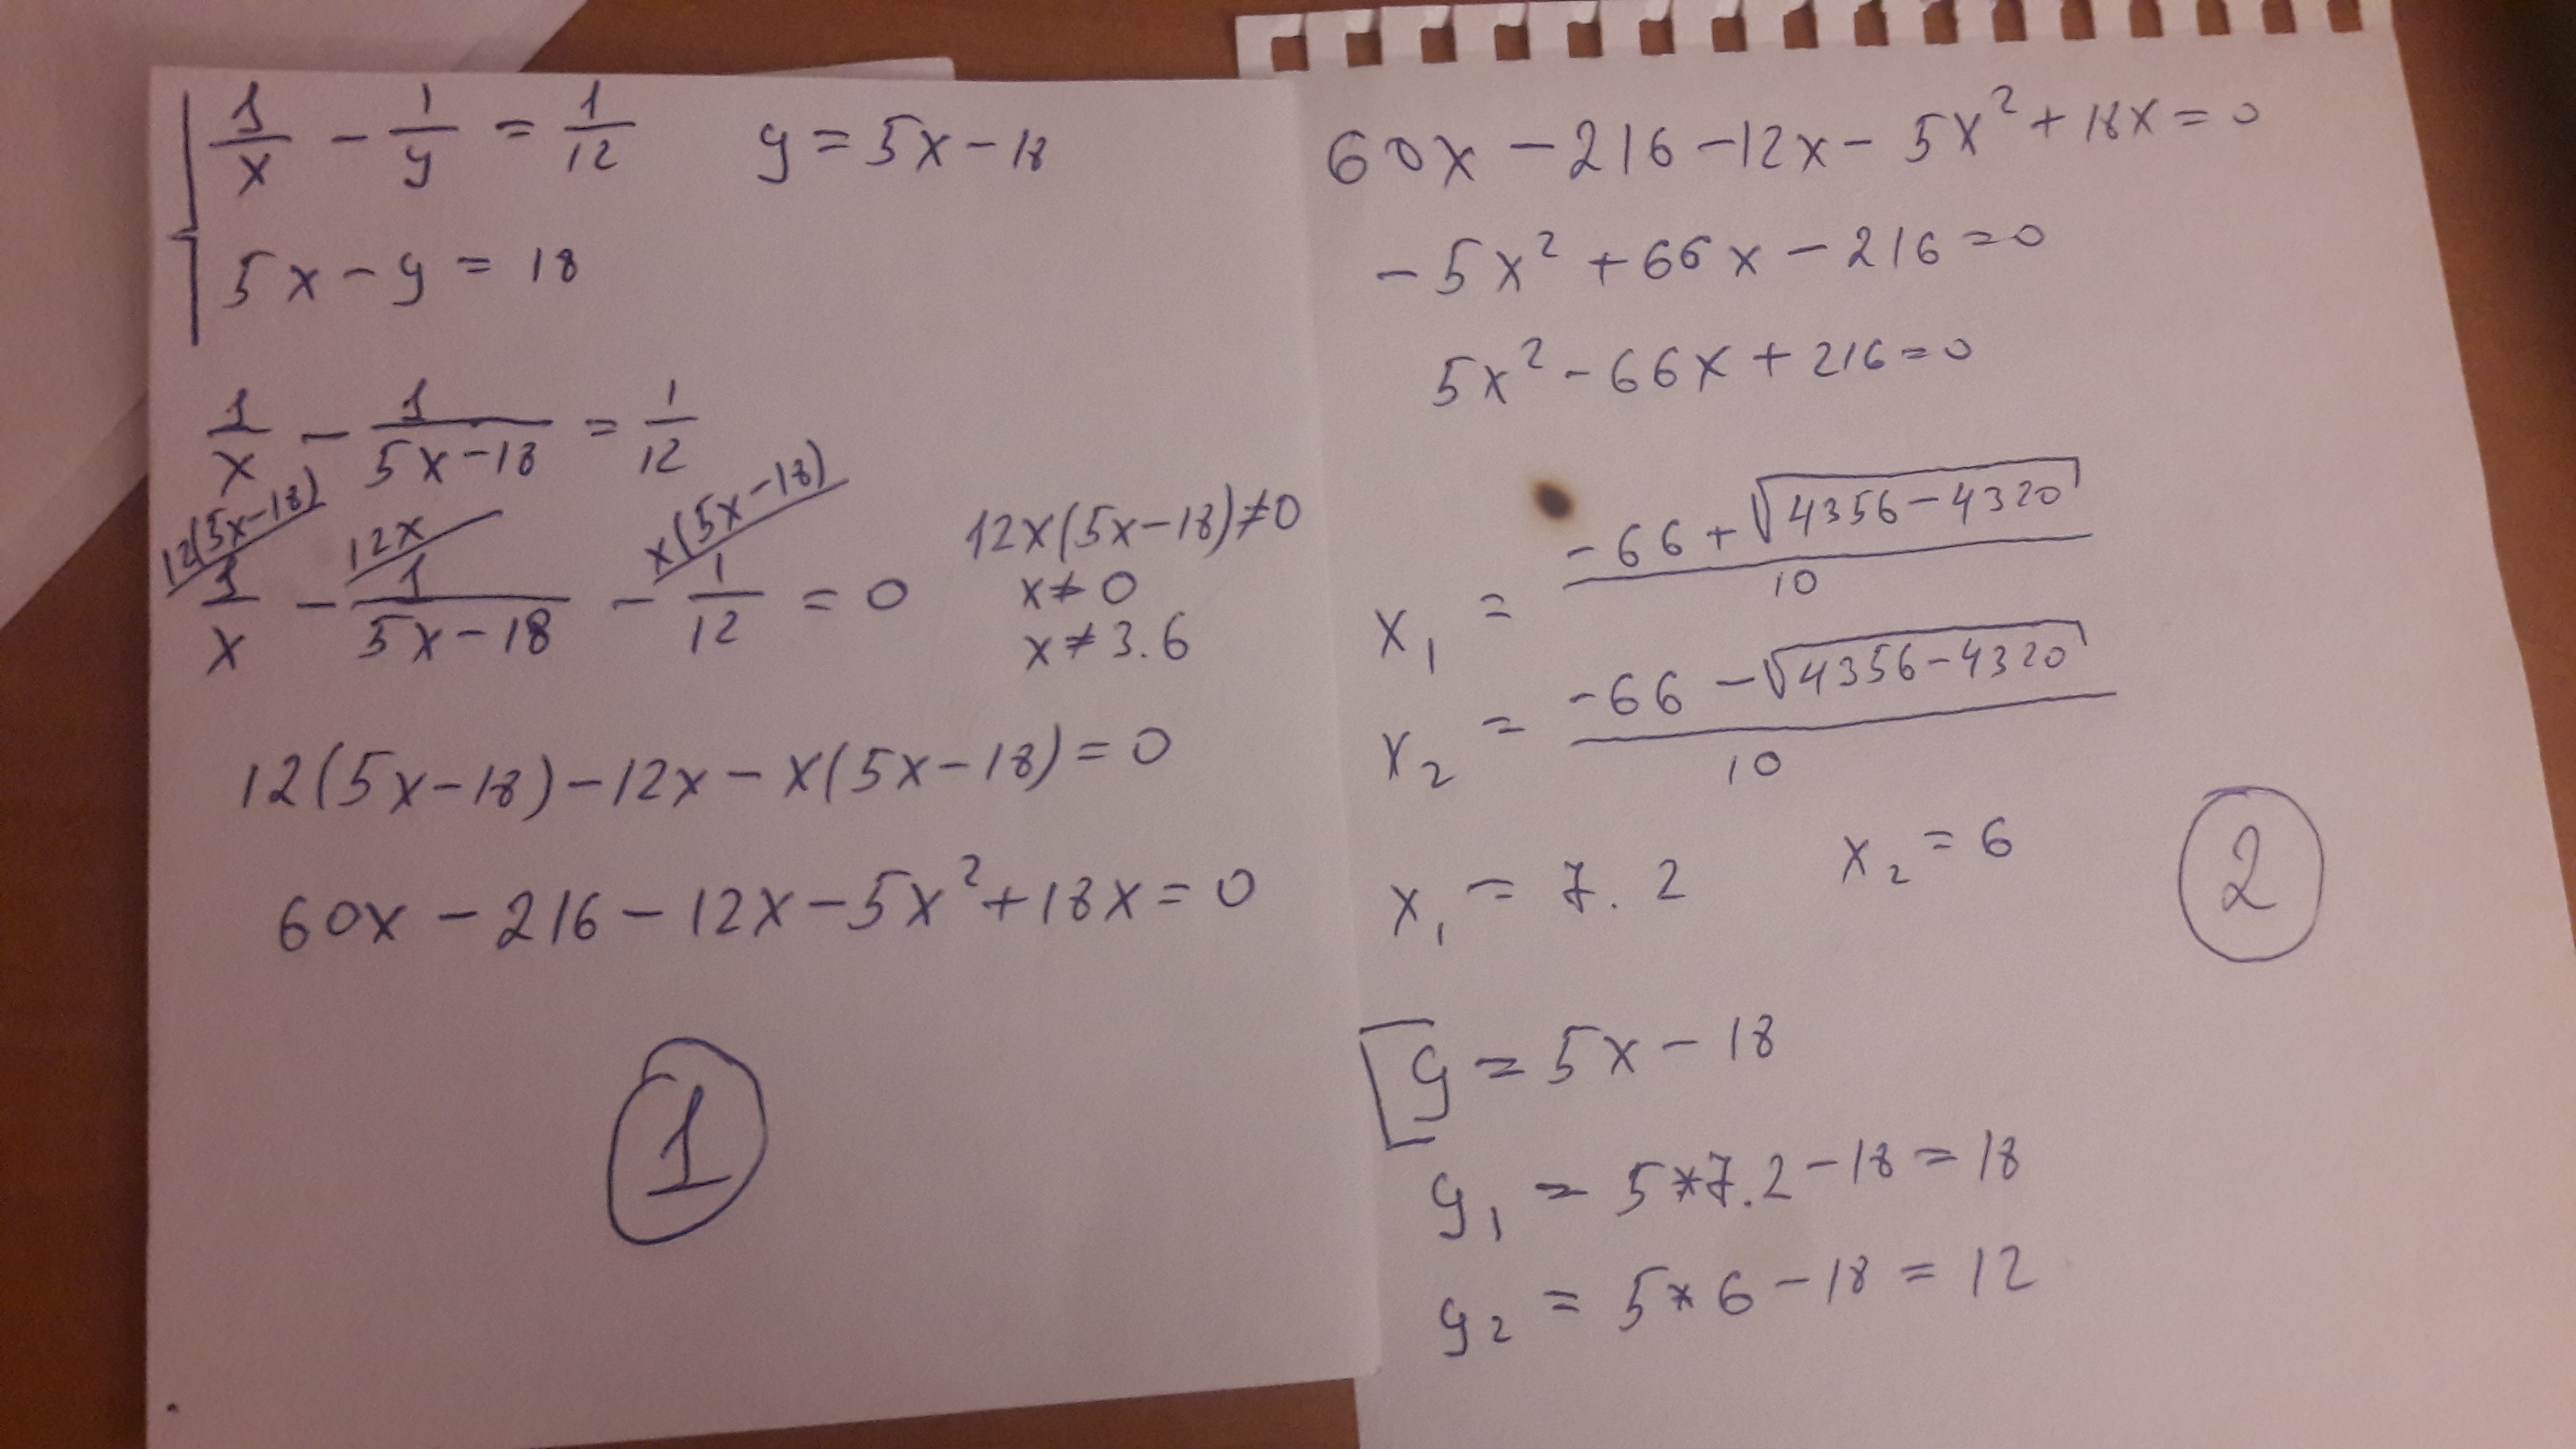 1/x - 1/y = 1/12   y = 5x - 18
5x - y = 18
1/x - 1/(5x-18) = 1/12
12(5x-18)   12x   x(5x-18)
1/x - 1/(5x-18) - 1/12 = 0   12x(5x-18)≠0
x≠0
x≠3.6
12(5x-18)-12x-x(5x-18)=0
60x - 216 - 12x - 5x² + 18x = 0
1
60x - 216 - 12x - 5x² + 18x = 0
-5x² + 66x - 216 = 0
5x² - 66x + 216 = 0
x₁ = (-66 + √(4356-4320))/10
x₂ = (-66 - √(4356-4320))/10
x₁ = 7.2   x₂ = 6
2
y = 5x - 18
y₁ = 5*7.2 - 18 = 18
y₂ = 5*6 - 18 = 12